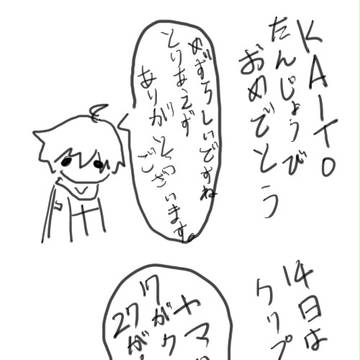 KAITO
たんじょうび
おめでとう
めずらしいですね
とりあえず
ありがとう
ございます。
14日は
クリプ
ヤマ
17がク
27が